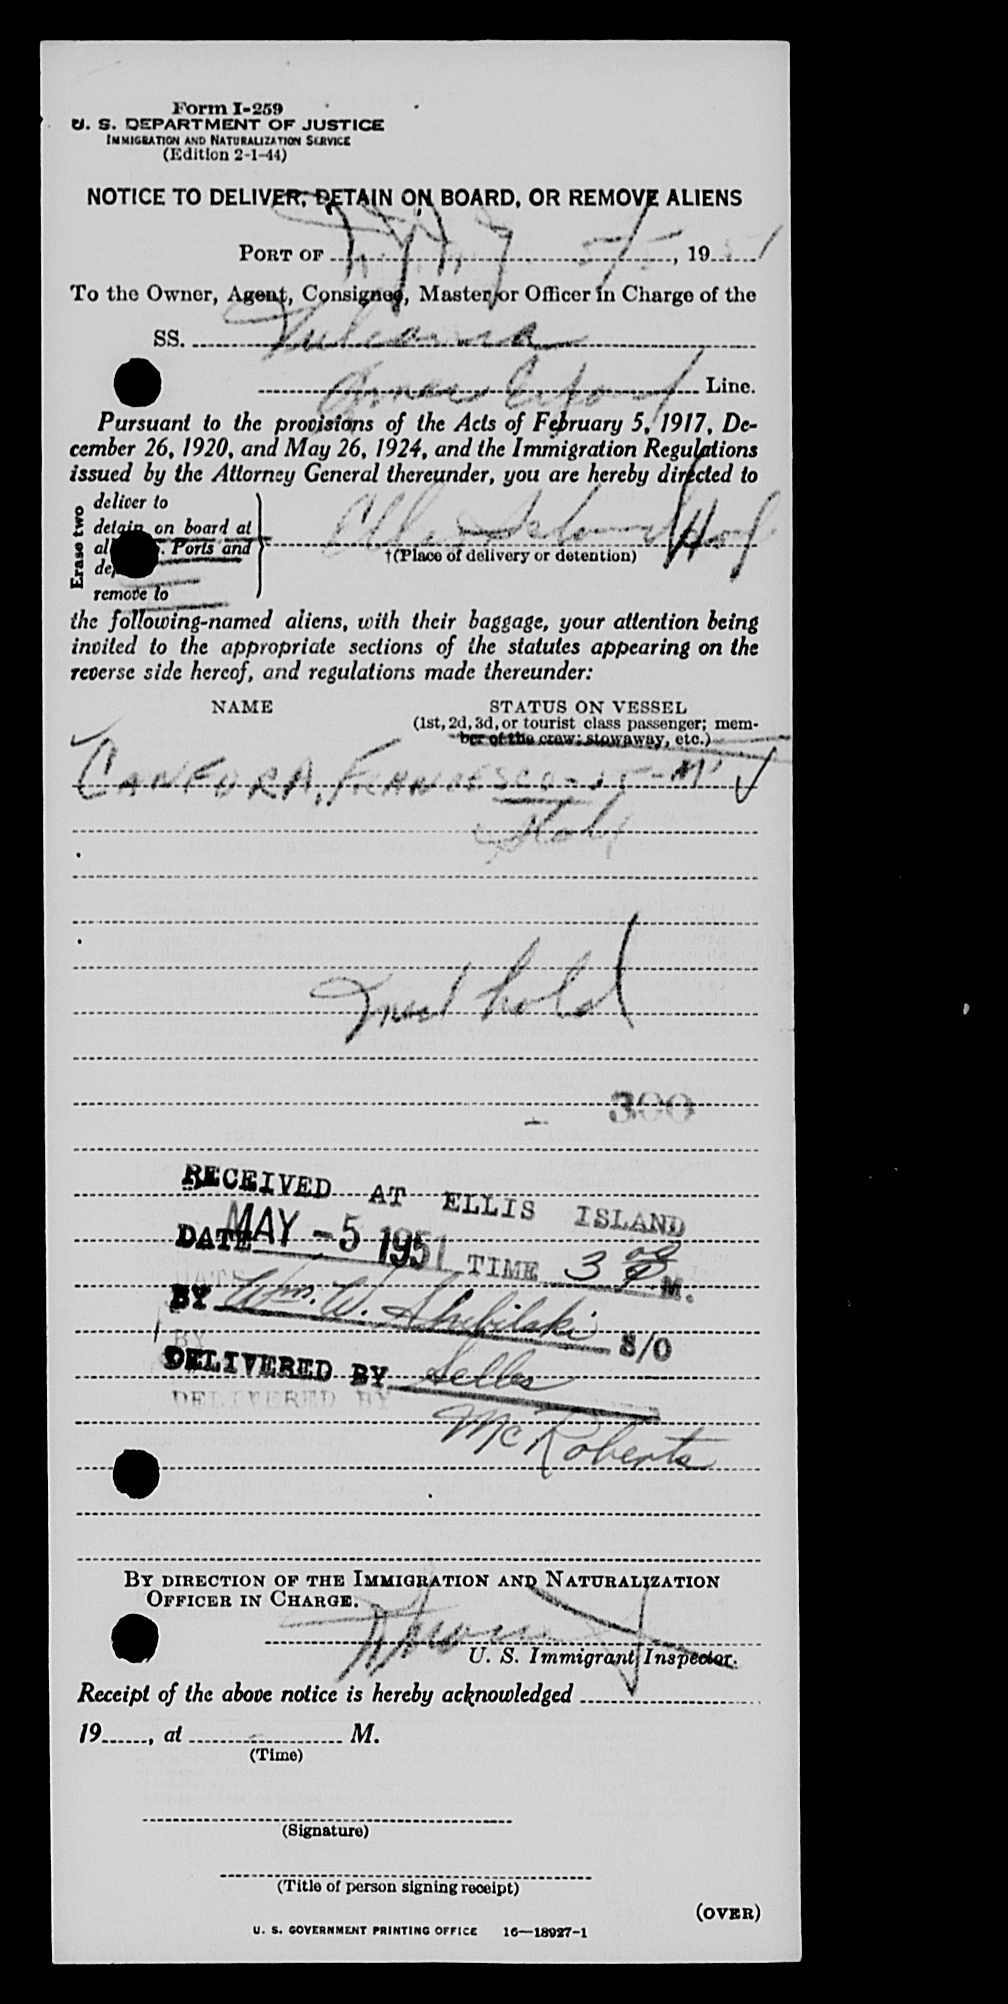 Form I-259
U. S. DEPARTMENT OF JUSTICE
IMMIGRATION AND NATURALIZATION SERVICE
(Edition 2-1-44)
NOTICE TO DELIVER, DETAIN ON BOARD, OR REMOVE ALIENS
PORT OF N.Y. N.Y 5/5, 1951
To the Owner, Agent, Consignee, Master, or Officer in Charge of the
SS. Vulcania
Amer Export Line.
Pursuant to the provisions of the Acts of February 5, 1917, De-
cember 26, 1920, and May 26, 1924, and the Immigration Regulations
issued by the Attorney General thereunder, you are hereby directed to
Erase two
deliver to
detain on board at
Ports and
remove to
Ellis Island Hosp
†(Place of delivery or detention)
the following-named aliens, with their baggage, your attention being
invited to the appropriate sections of the statutes appearing on the
reverse side hereof, and regulations made thereunder:
NAME STATUS ON VESSEL
(1st, 2d, 3d, or tourist class passenger; mem-
ber of the crew; stowaway, etc.)
CANFORA, FRANCESCO - 55 - M
Ital
Med hold
300
RECEIVED AT ELLIS ISLAND
DATE MAY - 5 1951 TIME 3 00 P M.
BY Wm. W. Shibilski S/O
DELIVERED BY Selles
DELIVERED BY
McRoberts
BY DIRECTION OF THE IMMIGRATION AND NATURALIZATION
OFFICER IN CHARGE.
U. S. Immigrant Inspector.
Receipt of the above notice is hereby acknowledged
19, at M.
(Time)
(Signature)
(Title of person signing receipt)
(OVER)
U. S. GOVERNMENT PRINTING OFFICE 16—18927-1